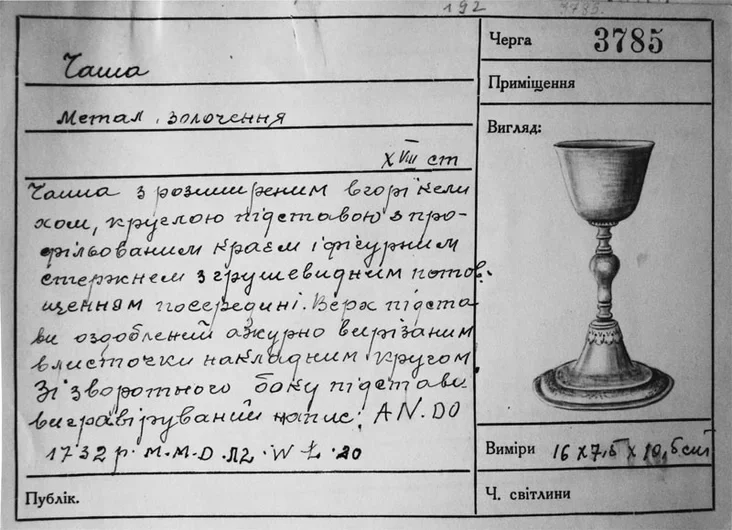 192
3785
Черга 3785
Чаша
Приміщення
Метал, золочення
Вигляд:
XVIII ст
Чаша з розширеним вгорі кели
хом, круглою підставою з про-
фільованим краєм і фігурним
стержнем з грушевидним потов-
щенням посередині. Верх підста
ви оздоблений ажурно вирізаним
в листочки накладним кругом.
Зі зворотного боку підстави
вигравіруваний напис: AN. DO
1732 р. М. М. D. Л2. W Ł. 20
Виміри 16 x 7,5 x 10,5 см
Публік.
Ч. світлини